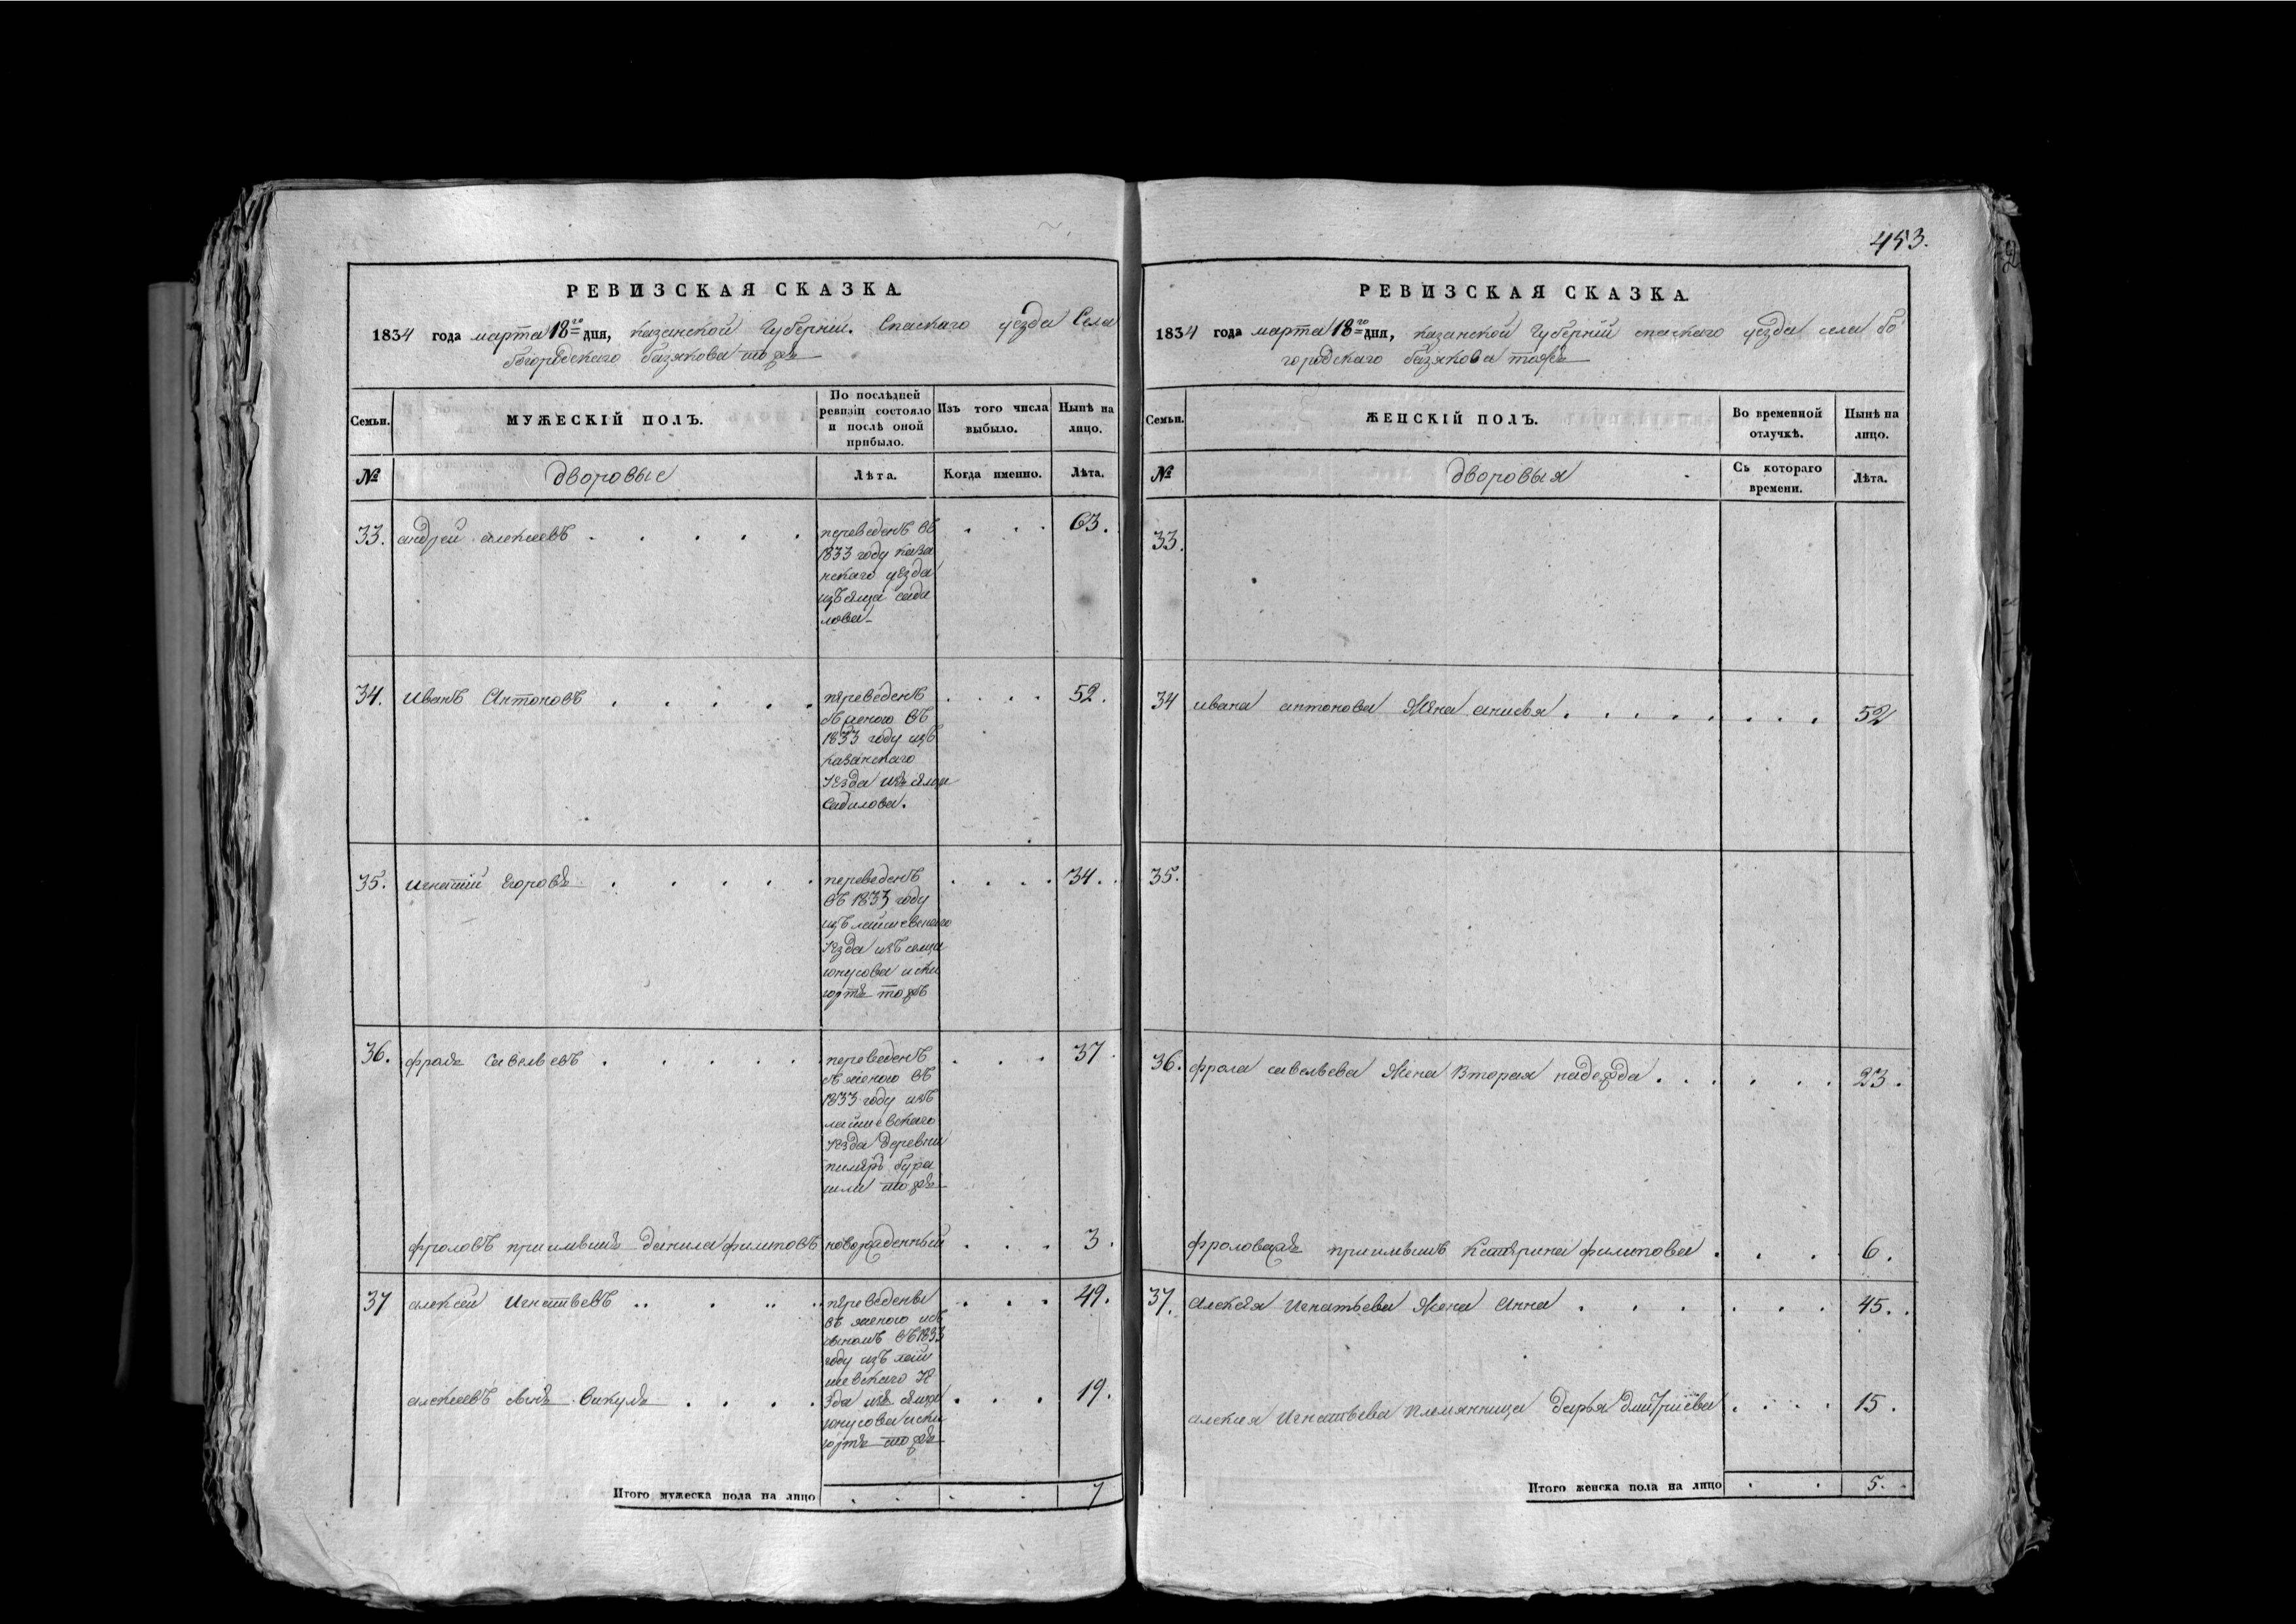 453.
РЕВИЗСКАЯ СКАЗКА.
1834 года марта 18го дня, казанской Губернии. Спаскаго уезда Села
богородскаго базякова тожъ
Семьи.
МУЖЕСКІЙ ПОЛЪ.
По послѣдней
ревизіи состояло
и послѣ оной
прибыло.
Изъ того числа
выбыло.
Нынѣ на
лицо.
№
дворовые
Лѣта.
Когда именно.
Лѣта.
33. андрей алексеевъ . . . . . 63.
переведенъ въ
1833 году каза
нскаго уезда
изъ сельца сади
лова
34. Иванъ Антоновъ . . . . . 52.
переведенъ
съ женою въ
1833 году изъ
казанскаго
уезда изъ сельца
Садилова.
35. игнатий Егоровъ . . . . . 34.
переведенъ
въ 1833 году
изъ лаишевскаго
уезда изъ сельца
юнусова
юртъ тожъ
36. фролъ савельевъ . . . . . 37
переведенъ
съ женою въ
1833 году изъ
лаишевскаго
уезда деревни
бура
тожъ
фроловъ приимышъ данила филиповъ новорожденный . . . 3.
37 алексей Игнатьевъ . . . . 49.
переведены
съ женою изъ
сыномъ въ 1833
году изъ лаи
шевскаго уе
зда изъ сельца
юнусова
юртъ тожъ
алексеевъ сынъ Викулъ . . . . 19.
Итого мужеска пола на лицо . . . . 7
РЕВИЗСКАЯ СКАЗКА.
1834 года марта 18го дня, казанской Губернии спаскаго уезда села бо
городскаго базякова тожъ
Семьи.
ЖЕНСКІЙ ПОЛЪ.
Во временной
отлучкѣ.
Нынѣ на
лицо.
№
дворовыя
Съ котораго
времени.
Лѣта.
33.
34 ивана антонова Жена анисья . . . . . . . . 52
35.
36. фрола савельева Жена Вторая надежда . . . . . . 23.
фролова жъ приимышъ Катерина филипова . . . . 6.
37. Алексея Игнатьева Жена Анна . . . . . . 45.
алексея Игнатьева племянница дарья дмитриева . . . . 15.
Итого женска пола на лицо . . 5.